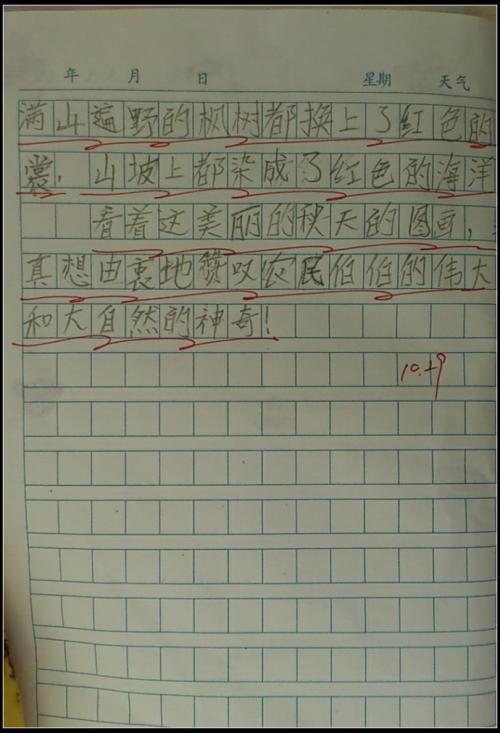 年 月 日 星期 天气
满山遍野的枫树都换上了红色的
裳，山坡上都染成了红色的海洋
看着这美丽的秋天的图画，
真想由衷地赞叹农民伯伯的伟大
和大自然的神奇！
10.29